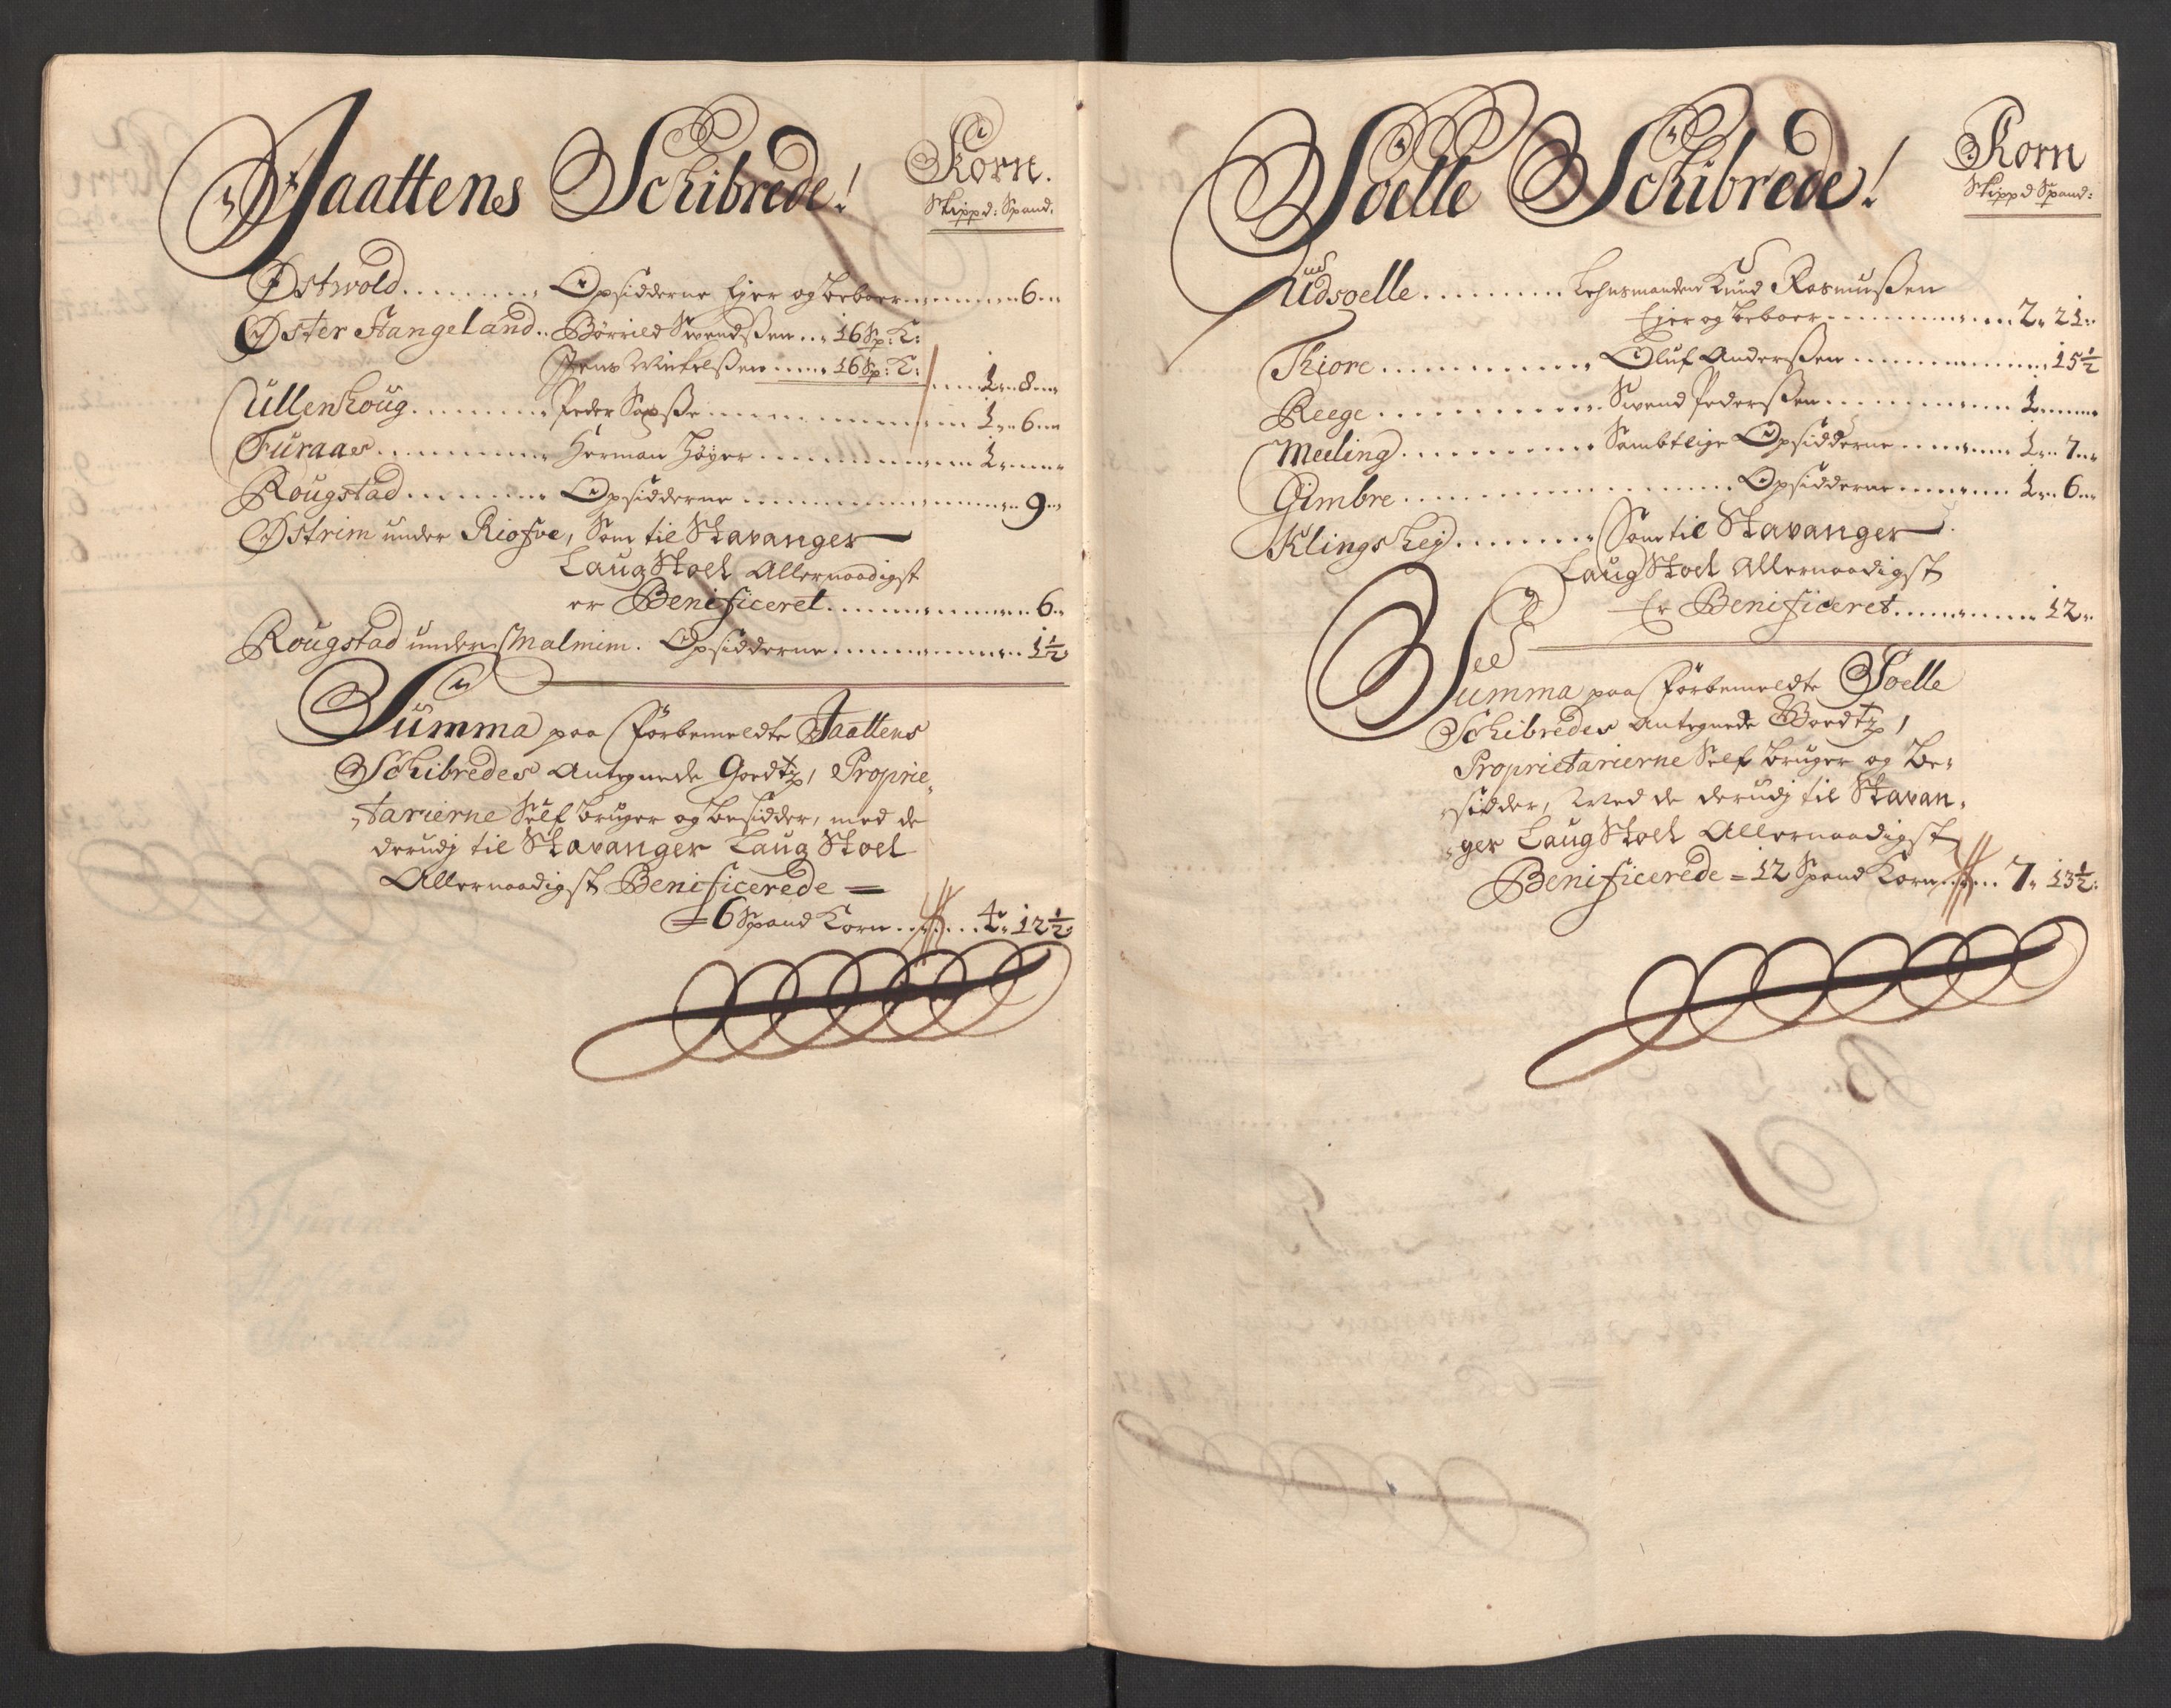 Jaattens Schibrede!
Korn.
Skippd: Spand:
Østvold ........ Opsidderne Ejer og beboer ........ 6 „
Øster Stangeland .. Børrild Swendsßen ... 16 Sp: K:
Jens Mickelßen .... 16 Sp: K: .... 1 „ 8 „
Ullenhoug ........ Peder ........ 1 „ 6 „
Furaas ........ Herman Høyer ........ 1 „
Rougstad ........ Opsidderne ........ 9 „
Østrim under Riofve, Som til Stavanger
Laug Stoel Allernaadigst
er Benificeret ........ 6 „
Rougstad under Malmim. Opsidderne ........ 1½
Summa paa forbemeldte Jaattens
Schibredes Antegnede Goedtz, Proprie„
„tarierne Self bruger og besidder, med de
derudj til Stavanger Laug Stoel
Allernaadigst Benificerede =
= 6 Spand Korn ........ 4 „ 12½
Soelle Schibrede!
Korn
Skippd Spand:
Udsoelle ........ Lehnsmanden Knud Rasmusßen
Ejer og beboer ........ 2 „ 21 „
Thiore ........ Oluf Andersßen ........ 15½
Reege ........ Swend Pedersßen ........ 1 „
Meeling ........ Sambtlige Opsidderne ........ 1 „ 7 „
Gimbre ........ Opsidderne ........ 1 „ 6 „
Klingshej ........ Som til Stavanger
Laug Stoel Allernaadigst
Er Benificeret ........ 12 „
Summa paa forbemeldte Soelle
Schibredes Antegnede Goedtz,
Proprietarierne Self bruger og be„
„sidder, Med de derudj til Stavan„
„ger Laug Stoel Allernaadigst
Benificerede = 12 Spand Korn .... 7 „ 13½